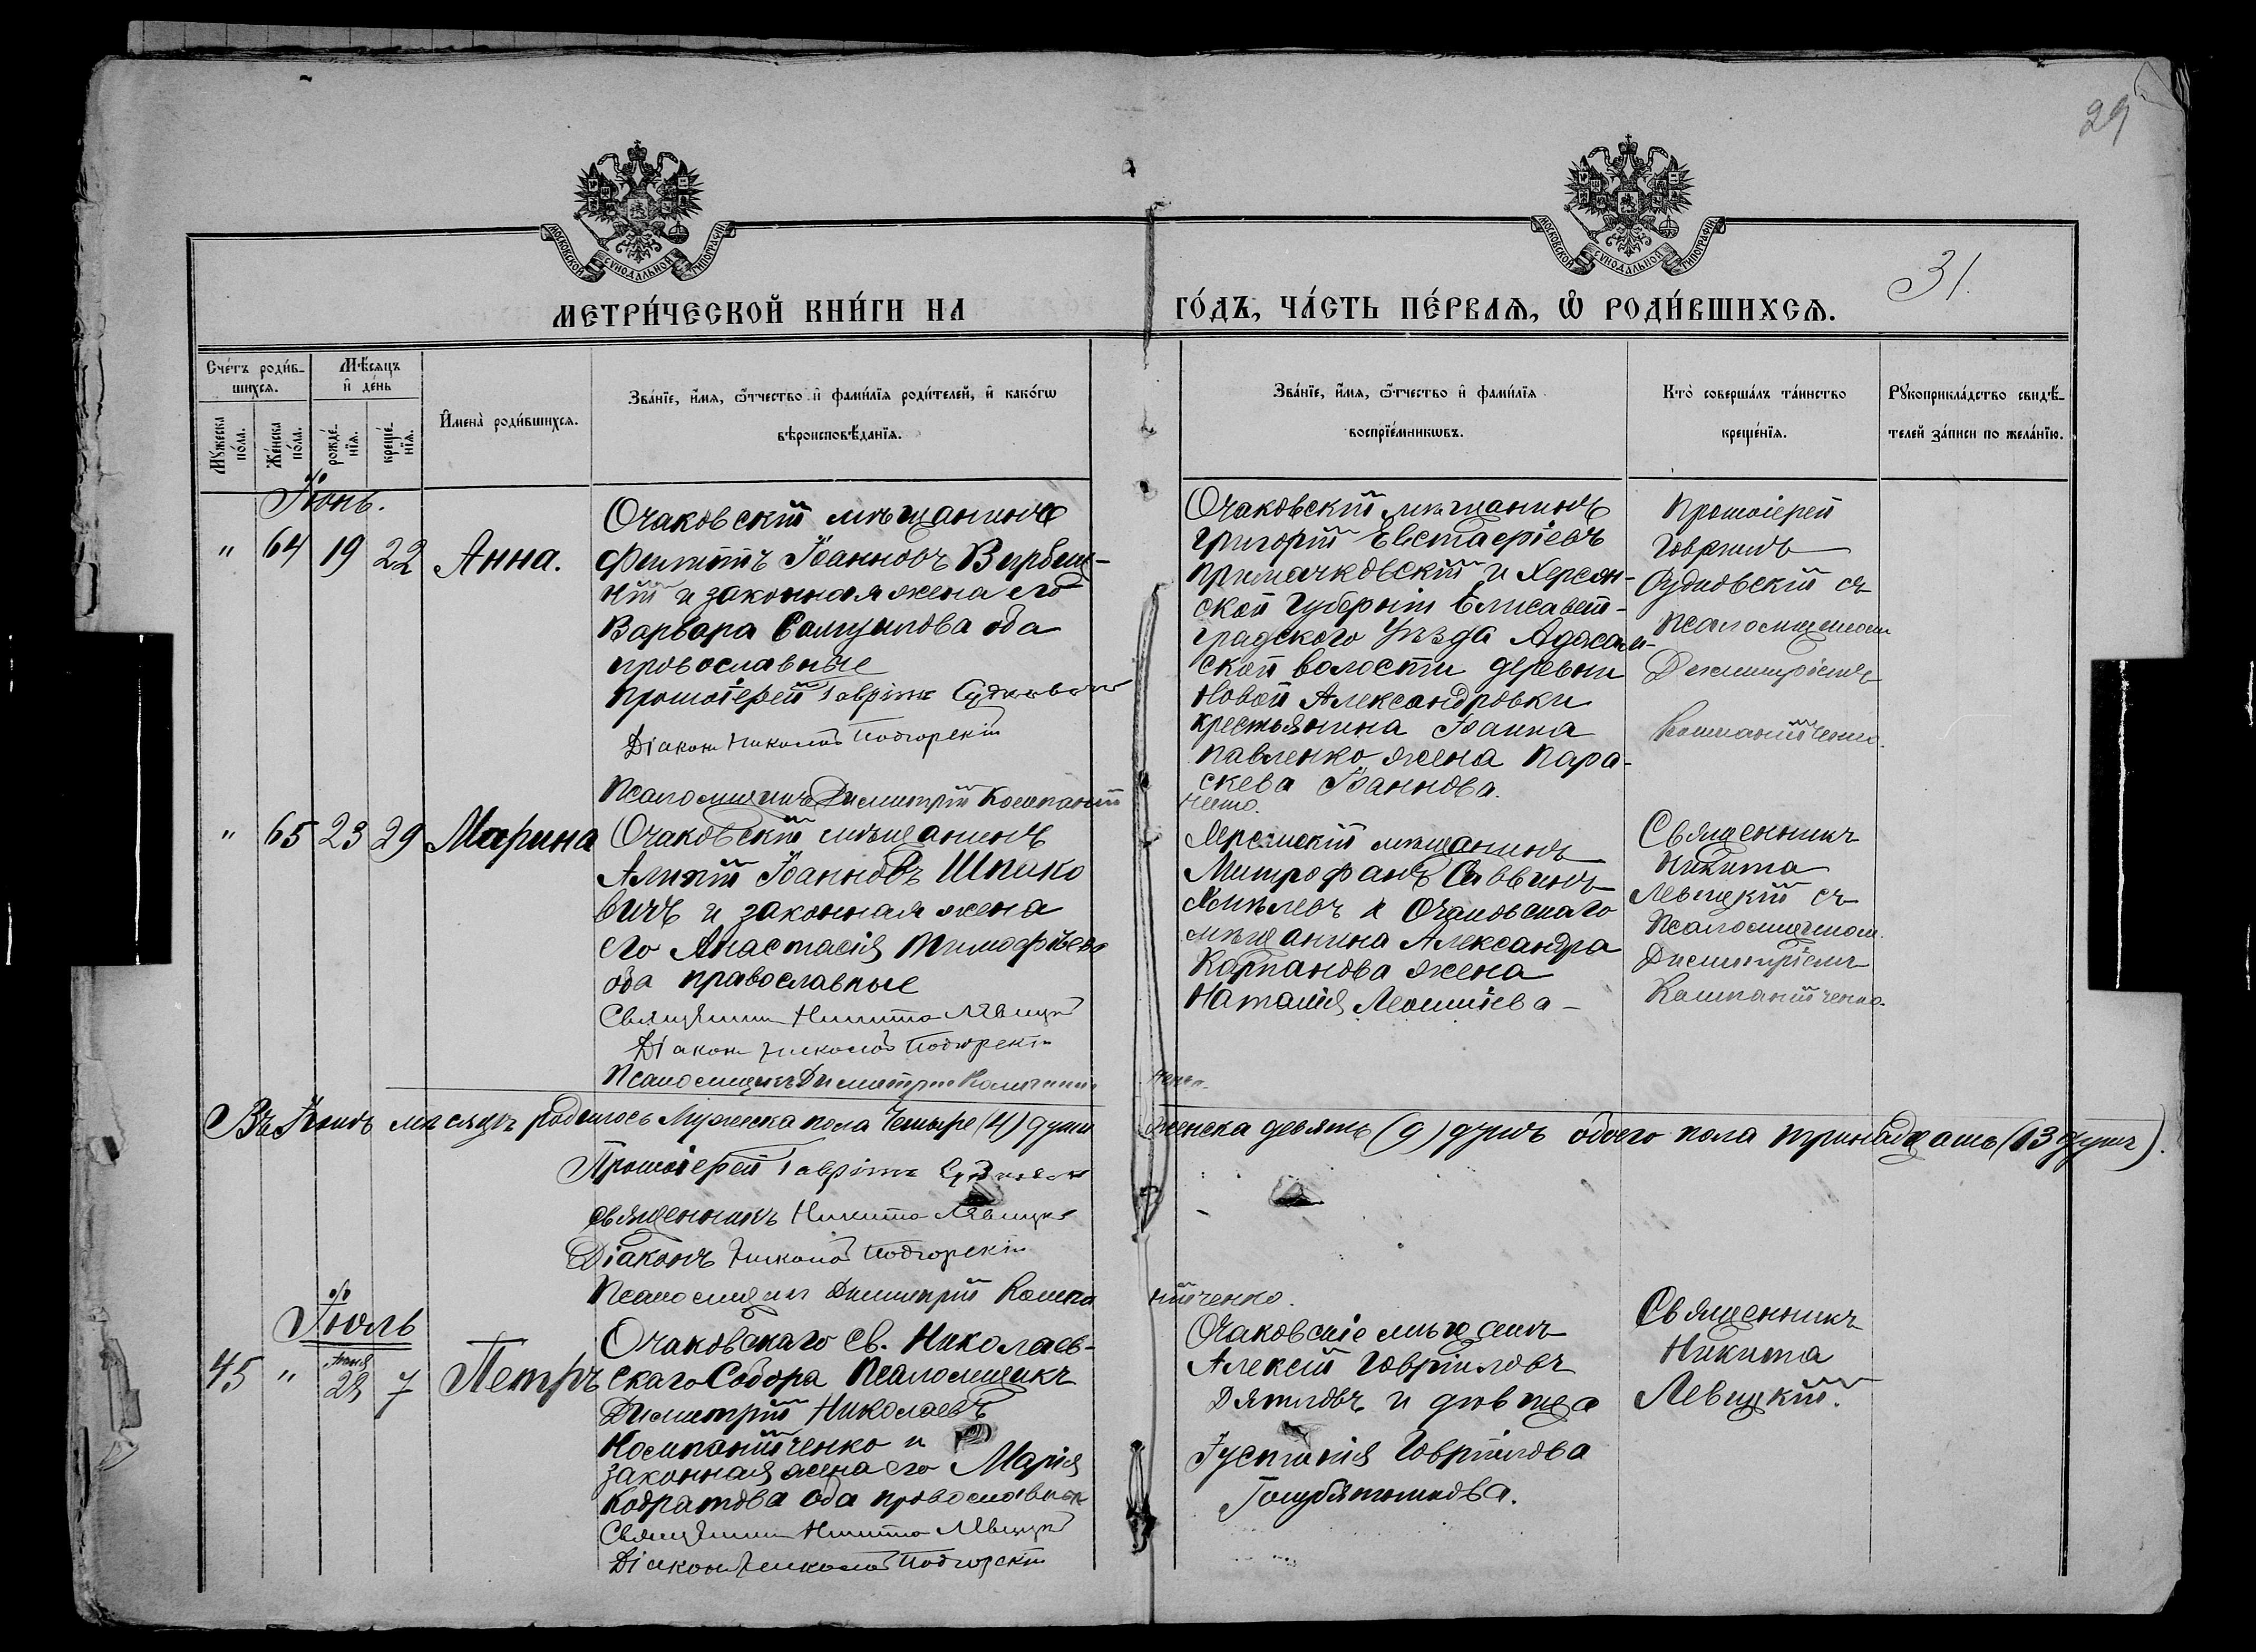 29
МОСКОВСКОЙ СУНОДАЛЬНОЙ ТИПОГРАФІИ
МОСКОВСКОЙ СУНОДАЛЬНОЙ ТИПОГРАФІИ
31.
МЕТРИ́ЧЕСКОЙ КНИ́ГИ НА
ГО́ДЪ, ЧА́СТЬ ПЕ́РВАѦ, Ѡ҆ РОДИ́ВШИХСѦ.
Сче́тъ роди́в-
шихсѧ.
Мѣ́сѧцъ
и҆ де́нь
Мꙋ́жеска
по́ла.
Же́нска
по́ла.
рожде́-
нїѧ.
креще́-
нїѧ.
И҆мена̀ роди́вшихсѧ.
Зва́нїе, и҆́мѧ, ѻ҆́тчество и҆ фами́лїѧ роди́телей, и҆ како́гѡ
вѣроисповѣ́данїѧ.
Зва́нїе, и҆́мѧ, ѻ҆́тчество и҆ фами́лїѧ
воспрїе́мникѡвъ.
Кто̀ соверша́лъ та́инство
креще́нїѧ.
Рꙋкоприкла́дство свидѣ́-
телей за́писи по жела́нїю.
Іюнь.
" 64 19 22 Анна.
Очаковскій мѣщанинъ
Филиппъ Іоанновъ Вербиц-
кій и законная жена его
Варвара Самуилова оба
православные
Протоіерей Гавріилъ Судковскій
Діаконъ Николай Подгорскій
Псаломщикъ Димитрій Компаній
ченко.
Очаковскій мѣщанинъ
Григорій Евстафіевъ
Примачковскій и Херсон-
ской Губерніи Елисавет-
градского Уѣзда
ской волости деревни
Новой Александровки
крестьянина Іоанна
Павленко жена Пара-
скева Іоаннова.
Протоіерей
Гавріилъ
Судковскій съ
Псаломщикомъ
Димитріемъ
Компанійченко.
" 65 23 29 Марина
Очаковскій мѣщанинъ
Алипій Іоанновъ Шпако
вичъ и законная жена
его Анастасія Тимофѣева
оба православные
Священникъ Никита Левицкій
Діаконъ Николай Подгорскій
Псаломщикъ Димитрій Компаній
ченко.
Херсонскій мѣщанинъ
Митрофанъ Саввинъ
и Очаковскаго
мѣщанина Александра
Карпанова жена
Наталія Леонтіева -
Священникъ
Никита
Левицкій съ
Псаломщикомъ
Димитріемъ
Компанійченко.
Въ Іюнѣ мѣсяцѣ родилось Мужеска пола Четыре (4) души женска девять (9) душъ обоего пола тринадцать (13 душъ).
Протоіерей Гавріилъ Судковскій
Священникъ Никита Левицкій
Діаконъ Николай Подгорскій
Псаломщикъ Димитрій Компа
нійченко.
Іюль
45 " Іюня 29 7 Петръ
Очаковскаго Св. Николаев-
скаго Собора Псаломщикъ
Димитрій Николаевъ
Компанійченко и
законная жена его Марія
Кодратова оба православные
Священникъ Никита Левицкій
Діаконъ Николай Подгорскій
Очаковскіе мѣщане
Алексій Гавріиловъ
Дятловъ и дѣвица
Іустинія Гавріилова
Голубятникова.
Священникъ
Никита
Левицкій.